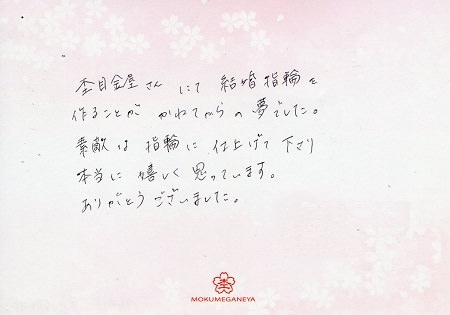 杢目金屋さんにて結婚指輪を
作ることがかねてからの夢でした。
素敵な指輪に仕上げて下さり
本当に嬉しく思っています。
ありがとうございました。
MOKUMEGANEYA